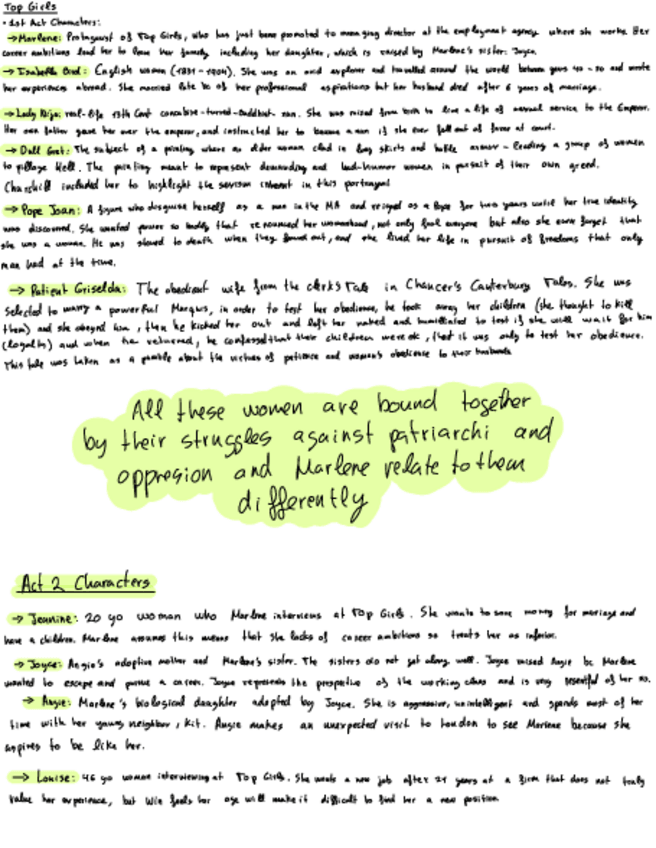 Top Girls
• 1st Act Characters:
→ Marlene: Protagonist of Top Girls, who has just been promoted to managing director at the employment agency where she works. Her
career ambitions lead her to leave her family including her daughter, which is raised by Marlene's sister: Joyce.
→ Isabella Bird: English woman (1831-1904). She was an avid explorer and travelled around the world between years 40-70 and wrote
her experiences abroad. She married late bc of her professional aspirations but her husband died after 6 years of marriage.
→ Lady Nijo: real-life 13th Cent concubine-turned-Buddhist-nun. She was raised from birth to live a life of sexual service to the Emperor.
Her own father gave her over the emperor, and instructed her to become a nun if she ever fell out of favor at court.
→ Dull Gret: The subject of a painting where an older woman clad in long skirts and battle armor - leading a group of women
to pillage Hell. The painting meant to represent demanding and bad-humor women in pursuit of their own greed.
Churchill included her to highlight the sexism inherent in this portrayal
→ Pope Joan: A figure who disguise herself as a man in the MA and reigned as a Pope for two years until her true identity
was discovered. She wanted power so badly that renounced her womanhood, not only fool everyone but also she even forget that
she was a woman. He was stoned to death when they found out, and she lived her life in pursuit of freedoms that only
men had at the time.
→ Patient Griselda: The obedient wife from the clerks Tale in Chaucer's Canterbury Tales. She was
selected to marry a powerful Marqus, in order to test her obedience, he took away her children (she thought to kill
them) and she obeyed him, then he kicked her out and left her naked and humiliated to test if she will wait for him
(loyalty) and when he returned, he confessed that their children were ok, that it was only to test her obedience.
This tale was taken as a parable about the virtues of patience and woman's obedience to their husbands
All these women are bound together
by their struggles against patriarchi and
oppresion and Marlene relate to them
differently
Act 2 Characters
→ Jeanine: 20 yo woman who Marlene interviews at Top Girls. She wants to save money for mariage and
have a children. Marlene assumes this means that she lacks of career ambitions so treats her as inferior.
→ Joyce: Angie's adoptive mother and Marlene's sister. The sisters do not get along well. Joyce raised Angie bc Marlene
wanted to escape and pursue a career. Joyce represents the perspective of the working class and is very resentful of her sis.
→ Angie: Marlene's biological daughter adopted by Joyce. She is aggressive, unintelligent and spends most of her
time with her young neighbour, Kit. Angie makes an unexpected visit to London to see Marlene because she
aspires to be like her.
→ Louise: 46 yo woman interviewing at Top Girls. She wants a new job after 21 years at a firm that does not truly
value her experience, but Win feels her age will make it difficult to find her a new position.